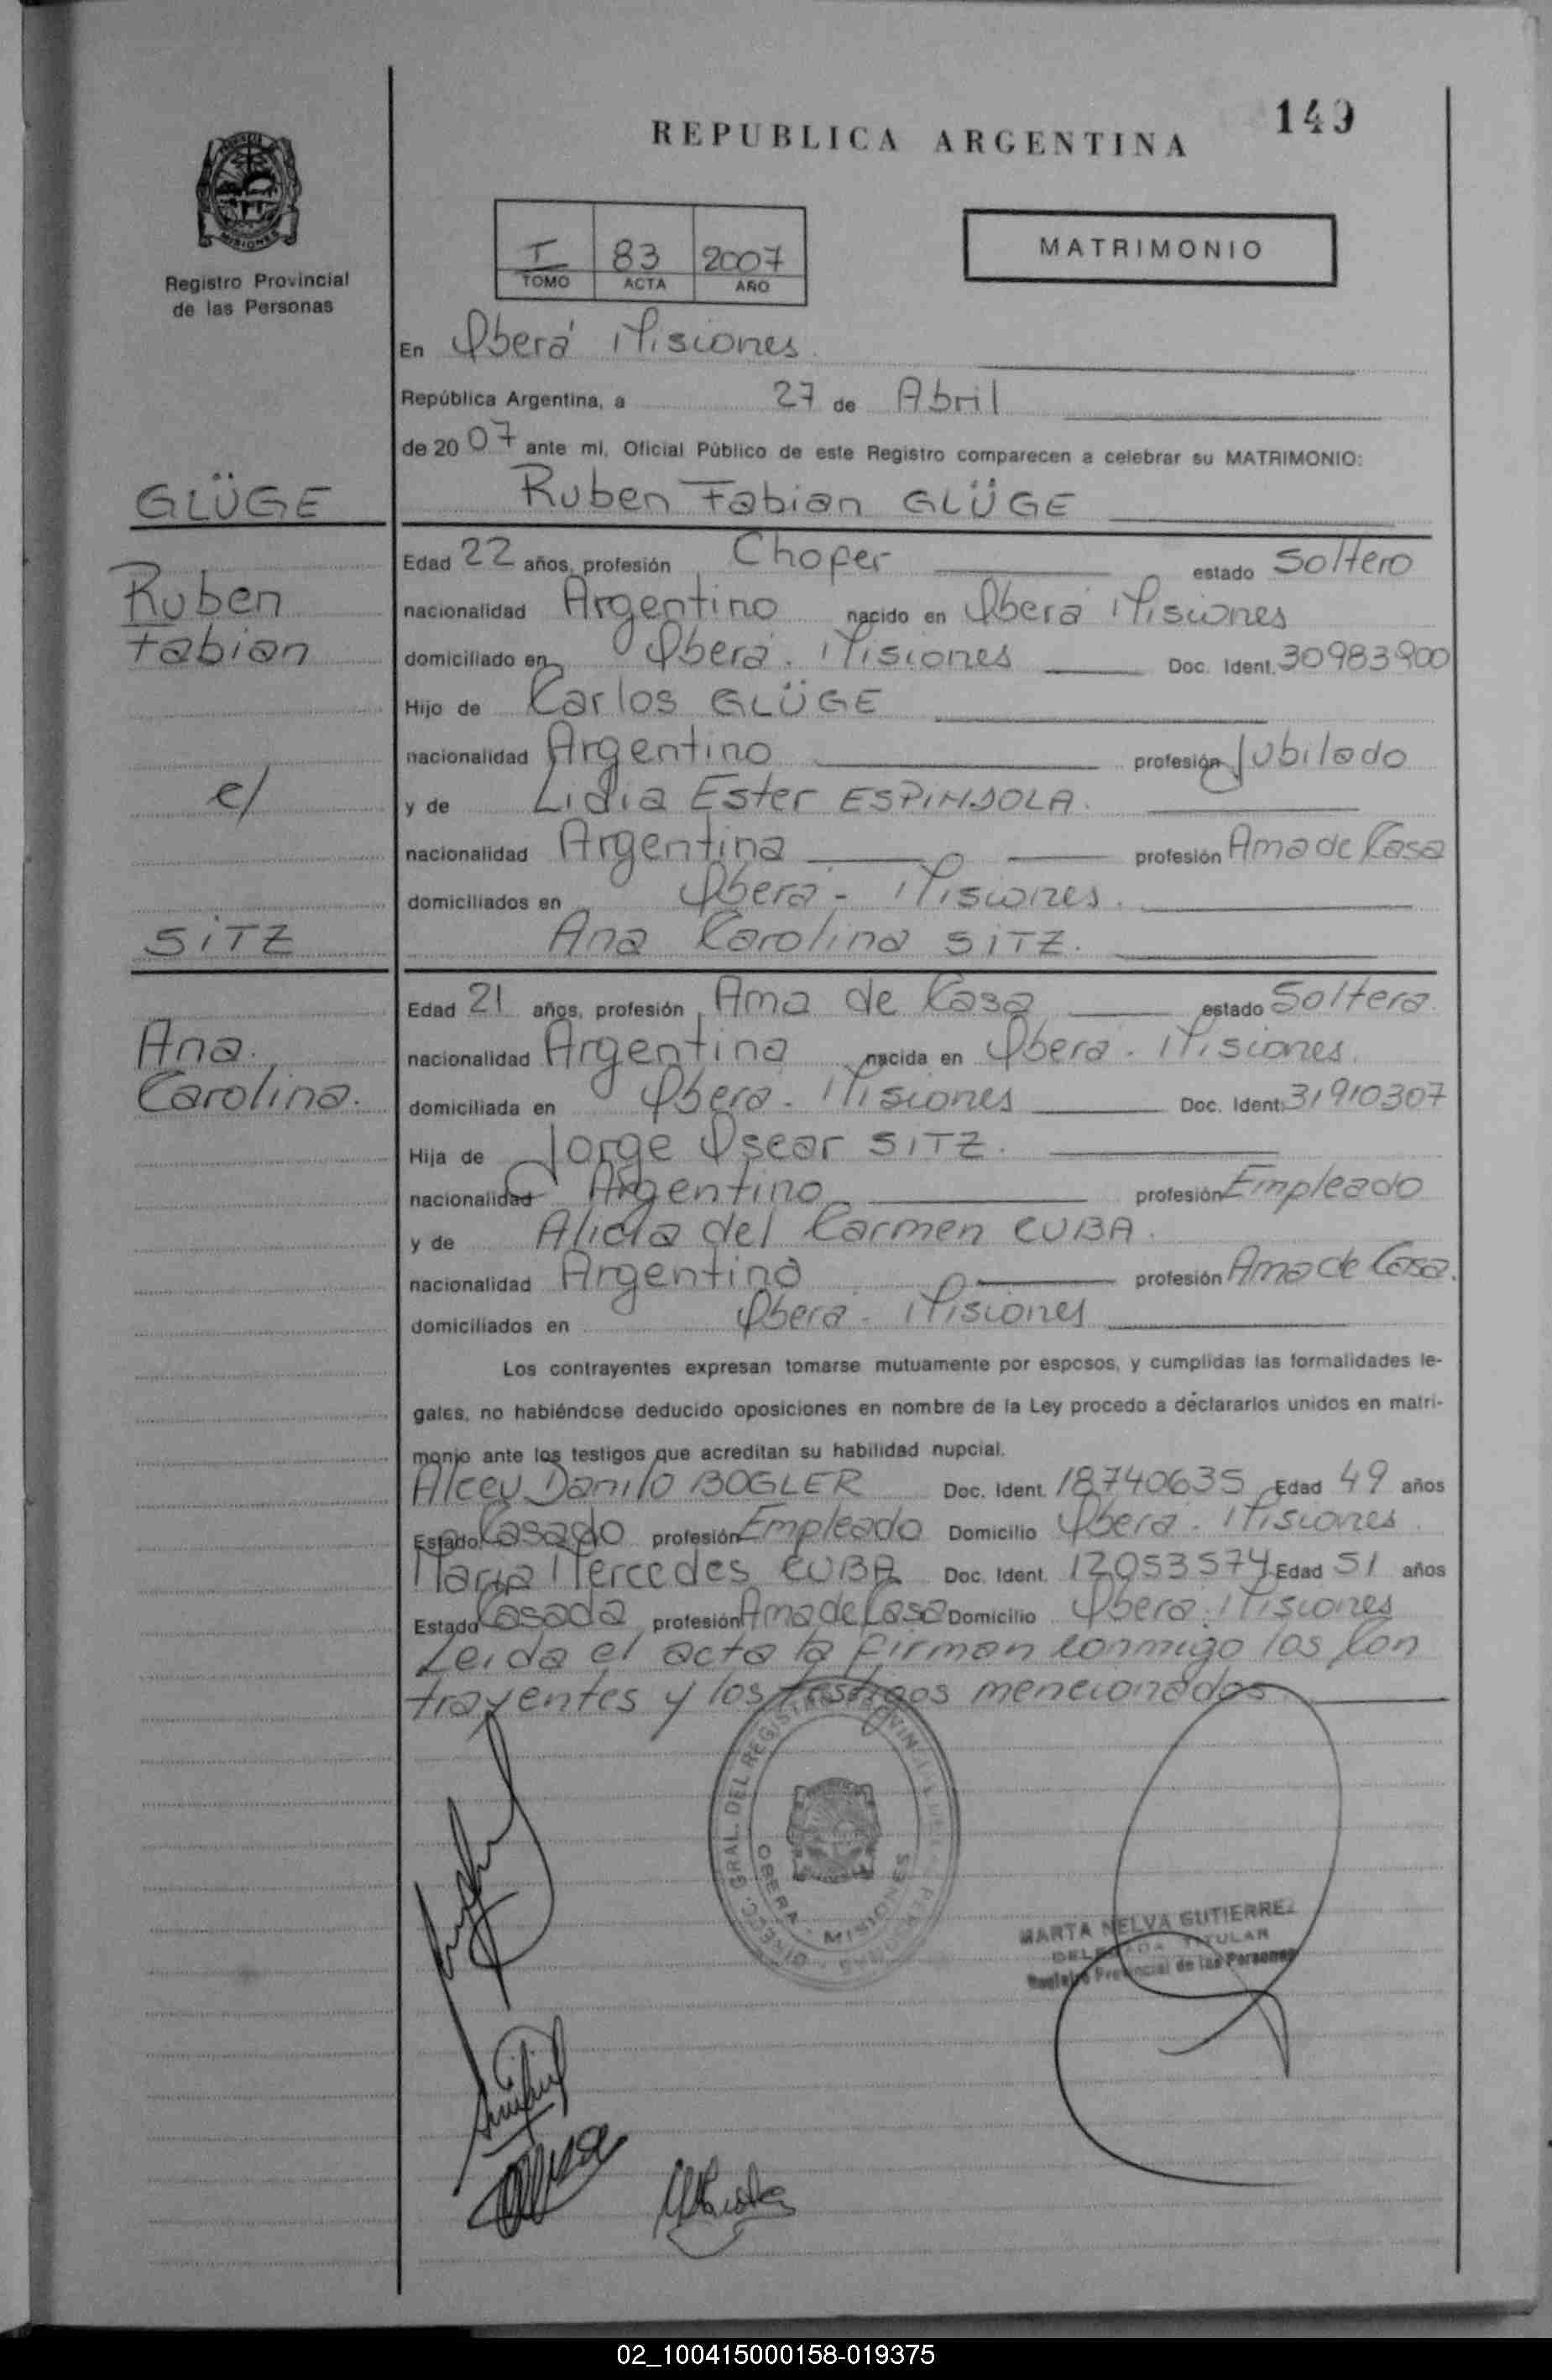 149
REPUBLICA ARGENTINA
MISIONES
Registro Provincial
de las Personas
I 83 2007
TOMO ACTA AÑO
MATRIMONIO
En Oberá Misiones
República Argentina, a 27 de Abril
de 2007 ante mí, Oficial Público de este Registro comparecen a celebrar su MATRIMONIO:
GLÜGE
Ruben Fabian GLÜGE
Edad 22 años, profesión Chofer estado Soltero
Ruben
nacionalidad Argentino nacido en Oberá Misiones
Fabian
domiciliado en Oberá. Misiones Doc. Ident. 30983900
Hijo de Carlos GLÜGE
nacionalidad Argentino profesión Jubilado
c/
y de Lidia Ester ESPINDOLA.
nacionalidad Argentina profesión Ama de Casa
domiciliados en Oberá - Misiones.
SITZ
Ana Carolina SITZ.
Edad 21 años, profesión Ama de Casa estado Soltera.
Ana.
nacionalidad Argentina nacida en Oberá - Misiones.
Carolina.
domiciliada en Oberá - Misiones Doc. Ident. 31910307
Hija de Jorge Oscar SITZ.
nacionalidad Argentino profesión Empleado
y de Alicia del Carmen CUBA.
nacionalidad Argentina profesión Ama de Casa.
domiciliados en Oberá - Misiones
Los contrayentes expresan tomarse mutuamente por esposos, y cumplidas las formalidades le-
gales, no habiéndose deducido oposiciones en nombre de la Ley procedo a déclararlos unidos en matri-
monio ante los testigos que acreditan su habilidad nupcial.
Alceu Danilo BOGLER Doc. Ident. 18740635 Edad 49 años
Estado Casado profesión Empleado Domicilio Oberá - Misiones
Maria Mercedes CUBA Doc. Ident. 12053574 Edad 51 años
Estado Casada profesión Ama de Casa Domicilio Oberá. Misiones
Leida el acta la firman conmigo los con
trayentes y los testigos mencionados.
DIRECC. GRAL. DEL REGISTRO PROVINCIAL DE LAS PERSONAS
OBERA - MISIONES
MARTA NELVA GUTIERREZ
DELEGADA TITULAR
Registro Provincial de las Personas
02_100415000158-019375